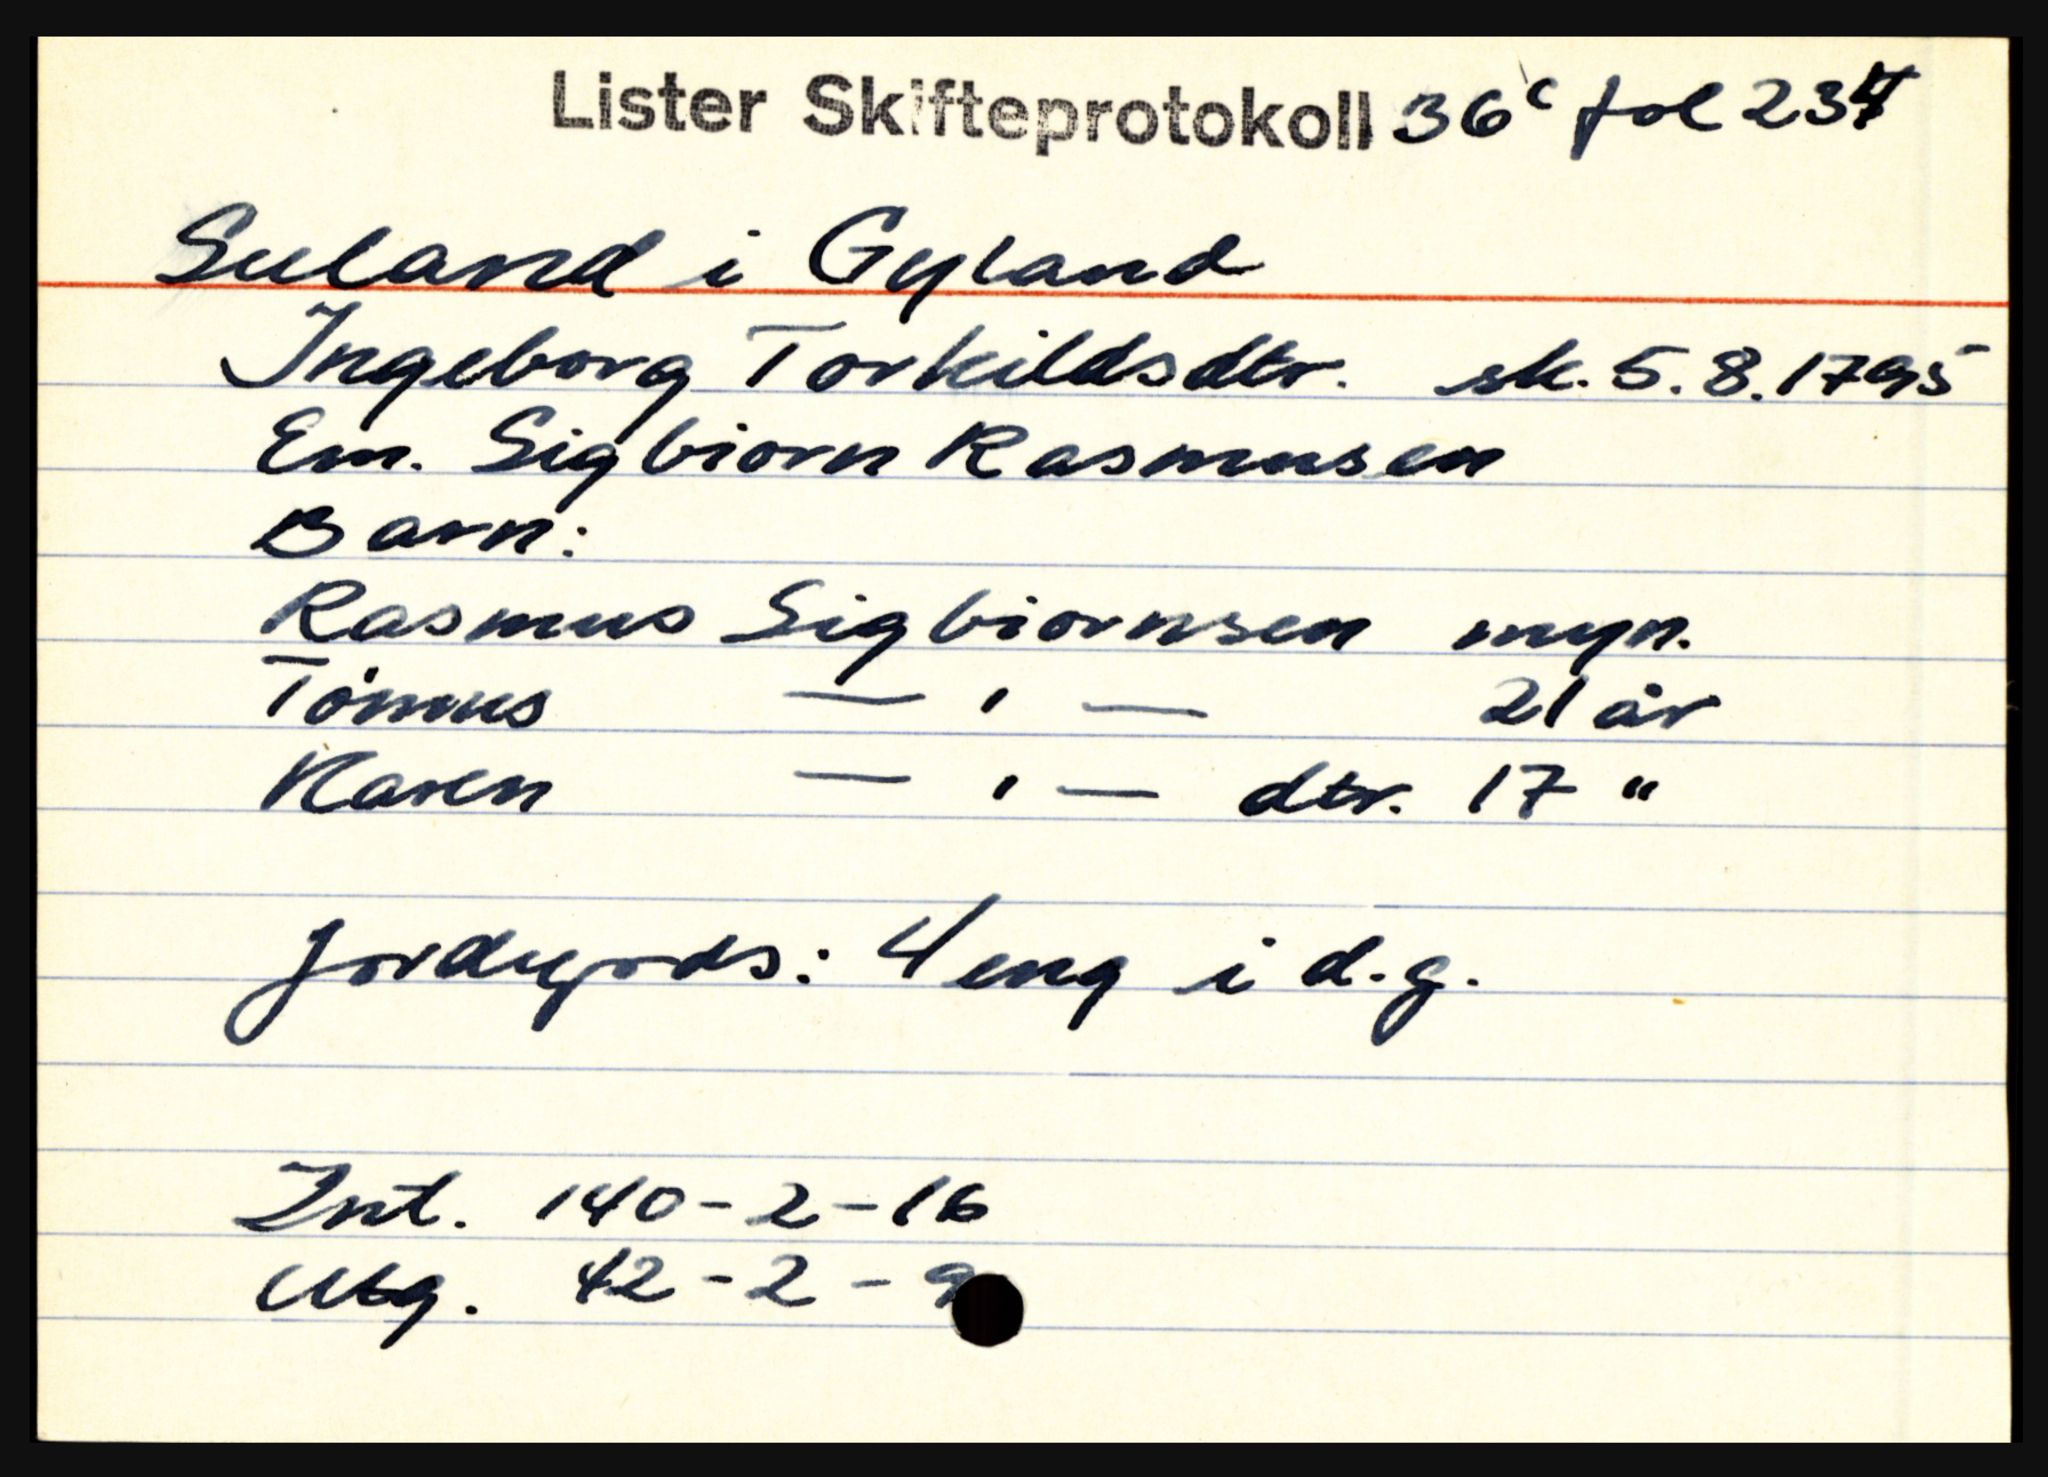 Lister Skifteprotokoll 36c fol 234
Suland i Gyland
Ingeborg Torkildsdtr. sk. 5.8.1795
Em. Sigbiorn Rasmusen
Barn:
Rasmus Sigbiornsen myn.
Tönnus — ' — 21 år
Karen — ' — dtr. 17 "
Jordegods: 4 eng i d.g.
Int. 140-2-16
Utg. 42-2-9